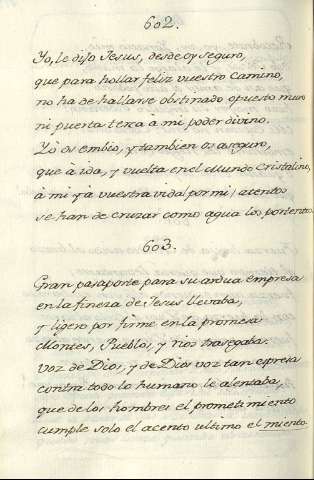 602.
Yo, le dijo Jesus, desde oy seguro,
que para hollar feliz vuestro camino,
no ha de hallarse obstinado opuesto muro
ni puerta terca à mi poder divino.
Yo os embio, y tambien os aseguro,
que à ida, y vuelta en el Mundo cristalino,
à mi y à vuestra vida( por mi) atentos
se han de cruzar como agua los portentos.
603.
Gran pasaporte para su ardua empresa
en la fineza de Jesus llevaba,
y ligero por firme en la promesa
Montes, Pueblos, y rios trasegaba.
voz de Dios, y de Dios voz tan expresa
contra todo lo humano le alentaba,
que de los hombres el prometimiento
cumple solo el acento ultimo el miento.